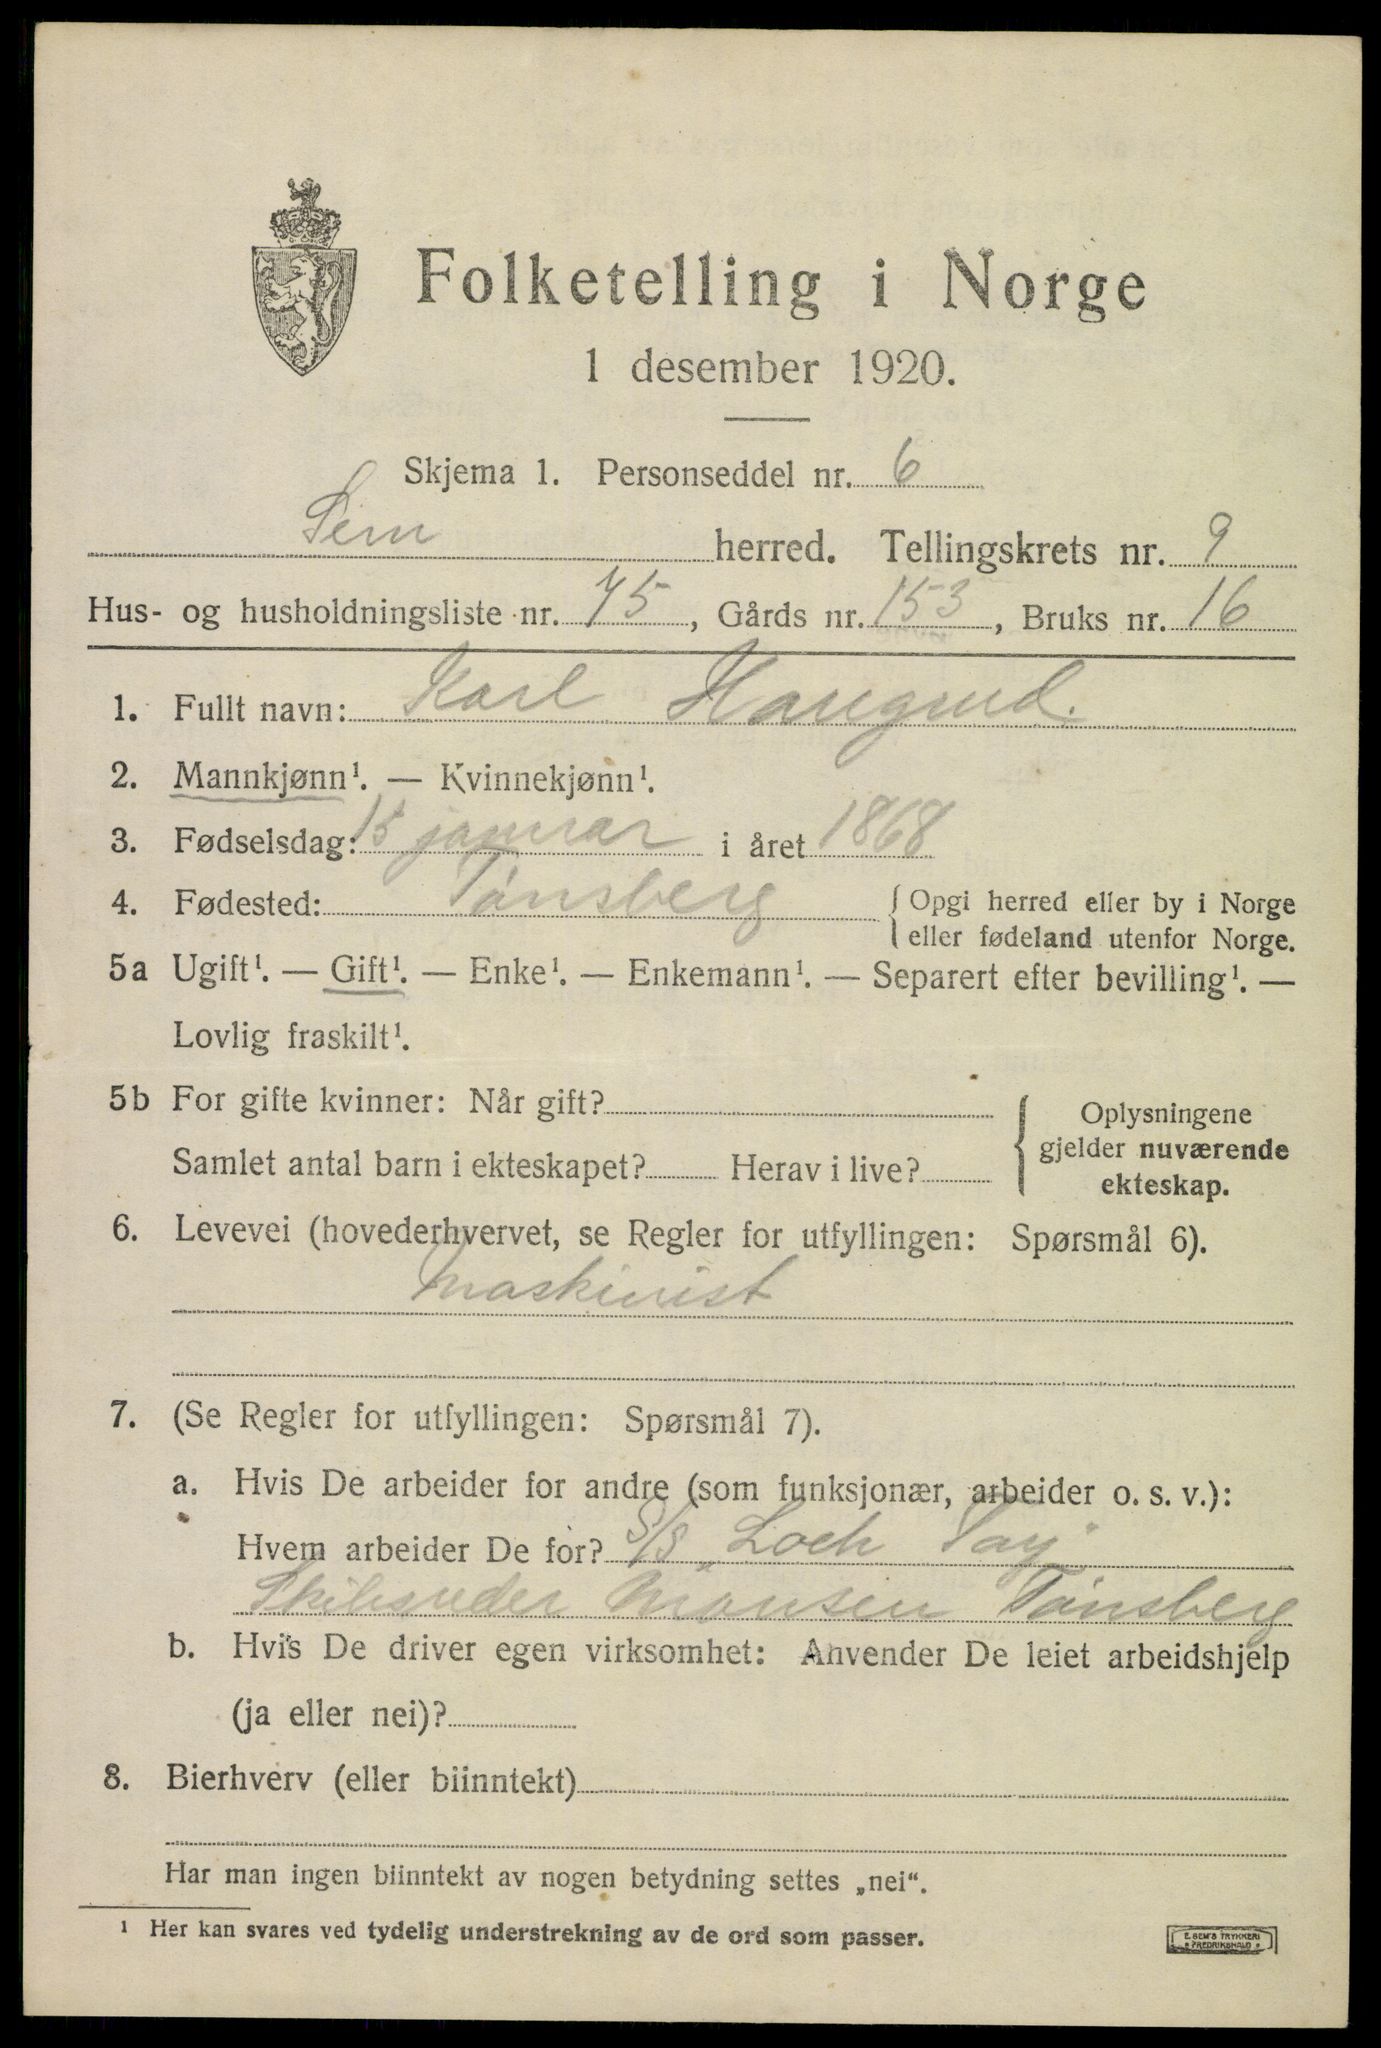 Folketelling i Norge
1 desember 1920.
Skjema 1. Personseddel nr. 6
Sem herred. Tellingskrets nr. 9
Hus- og husholdningsliste nr. 75, Gårds nr. 153, Bruks nr. 16
1. Fullt navn: Karl Haugrud.
2. Mannkjønn¹. — Kvinnekjønn¹.
3. Fødselsdag: 15 januar i året 1868
4. Fødested: Tønsberg { Opgi herred eller by i Norge
eller fødeland utenfor Norge.
5a Ugift¹. — Gift¹. — Enke¹. — Enkemann¹. — Separert efter bevilling¹. —
Lovlig fraskilt¹.
5b For gifte kvinner: Når gift?
Samlet antal barn i ekteskapet? Herav i live?
{ Oplysningene
gjelder nuværende
ekteskap.
6. Levevei (hovederhvervet, se Regler for utfyllingen: Spørsmål 6).
Maskinist
7. (Se Regler for utfyllingen: Spørsmål 7).
a. Hvis De arbeider for andre (som funksjonær, arbeider o. s. v.):
Hvem arbeider De for? S/S „Loch Tay"
Skibsreder Monsen Tønsberg
b. Hvis De driver egen virksomhet: Anvender De leiet arbeidshjelp
(ja eller nei)?
8. Bierhverv (eller biinntekt)
Har man ingen biinntekt av nogen betydning settes „nei“.
¹ Her kan svares ved tydelig understrekning av de ord som passer.
E. SEM'S TRYKKERI
• FREDRIKSHALD •